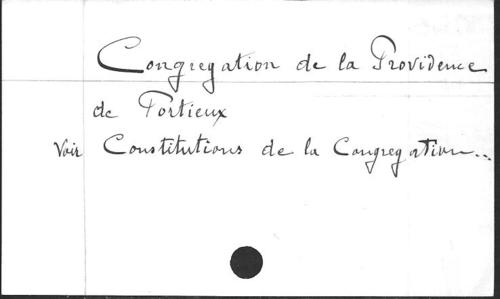 Congregation de la Providence
de Portieux
Voir Constitutions de la Congregation...